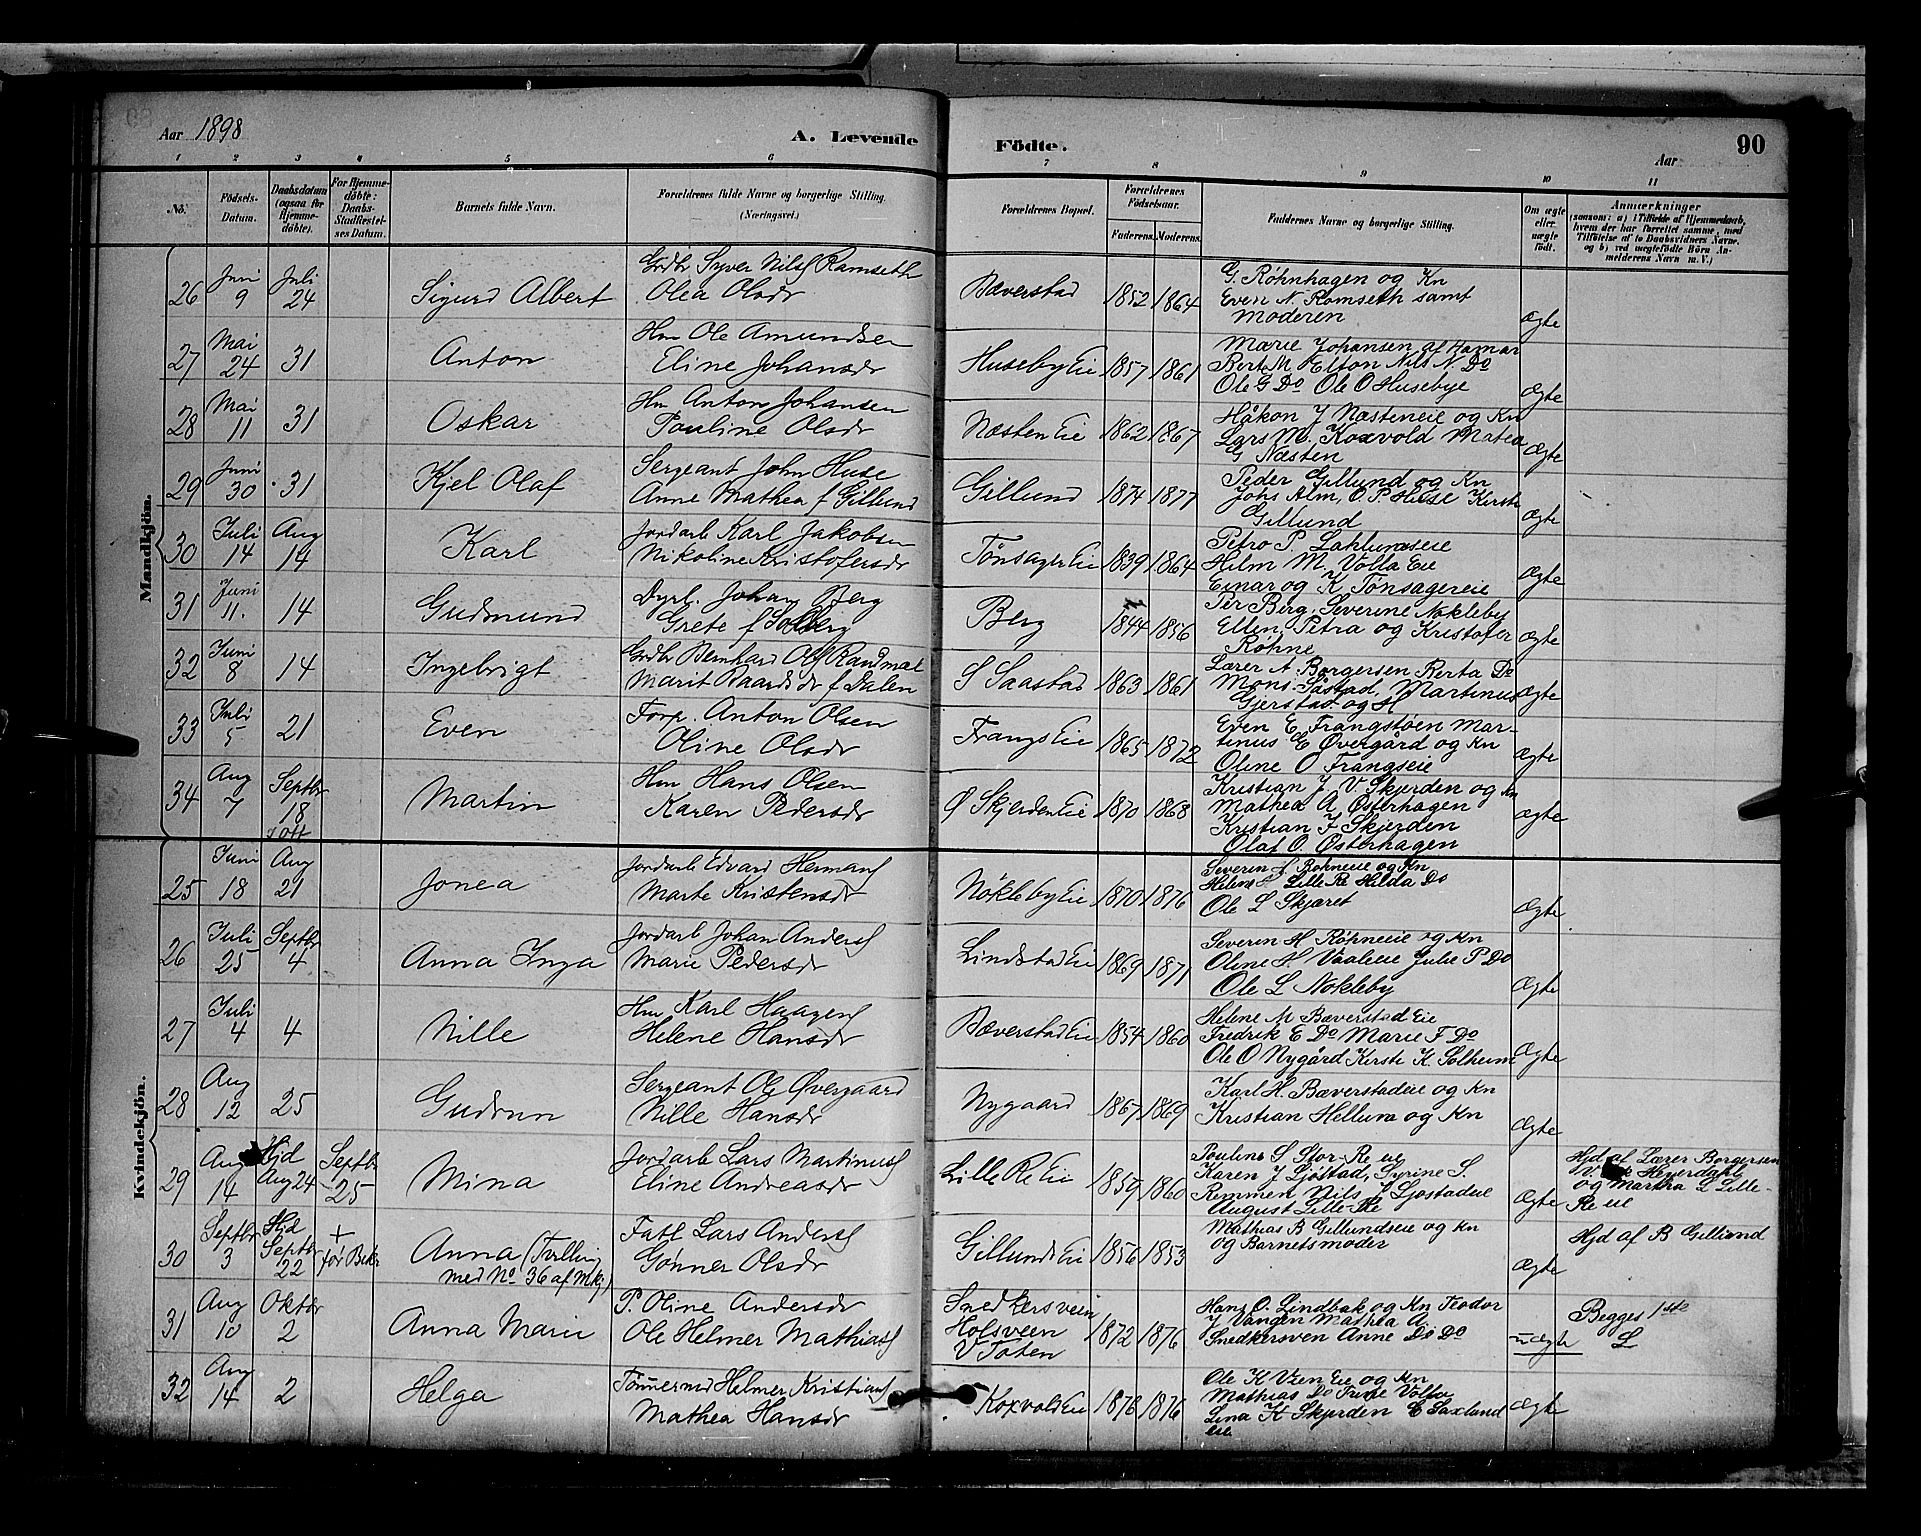 Aar 1898
A. Levende
Födte.
Aar
90
1 2 3 4 5 6 7 8 9 10 11
No.
Födsels-Datum.
Daabsdatum (ogsaa for Hjemme-döbte).
For Hjemme-döbte: Daabs-Stadfæstel-ses Datum.
Barnets fulde Navn.
Forældrenes fulde Navne og borgerlige Stilling. (Næringsvei.)
Forældrenes Bopæl.
Forældrenes Födselsaar.
Faderens. Moderens.
Faddernes Navne og borgerlige Stilling.
Om ægte eller uægte födt.
Anmærkninger
(saasom: a) i Tilfælde af Hjemmedaab, hvem der har forrettet samme, med Tilföielse af to Daabsvidners Navne, og b) ved uægtefödte Börn Anmelderens Navn m. V.)
Mandkjön.
26 Juni 9 Juli 24 Sigurd Albert
Grdbr Syver Nilss Ramseth
Olea Olsdr
Bæverstad 1852 1864
G. Røhnhagen og Kn
Even N. Romseth samt
Moderen
Ægte
27 Mai 24 31 Anton
Hm Ole Amundsen
Eline Johansdr
Huseby Eie 1857 1861
Marie Johansen af Hamar
Berte M. Elton Nils N. Do
Ole G Do Ole O Husebye
Ægte
28 Mai 11 31 Oskar
Hm Anton Johansen
Pouline Olsdr
Næsten Eie 1862 1867
Håkon J Næsteneie og Kn
Lars M. Koxvold Matea
G Næsten
Ægte
29 Juni 30 31 Kjel Olaf
Sergeant John Huse
Anne Mathea f Gillund
Gillund 1874 1877
Peder Gillund og Kn
Johs Alm, O P Huse Kirsti
Gillund
Ægte
30 Juli 14 Aug 14 Karl
Jordarb Karl Jakobsen
Nikoline Kristofersdr
Tønsager Eie 1839 1864
Petro P.
Hilm M. Volla Eie
Einar og K Tønsagereie
Ægte
31 Juni 11. 14 Gudmund
Dyrl. Johan Berg
Grete f Solberg
Berg 1844 1856
Per Berg. Severine Nokleby
Ellen, Petra og Kristofer
Røhne
Ægte
32 Juni 8 14 Ingebrigt
Grdbr Bernhard Ols Randmæl
Marit Baardsdr f Dalen
S Saastad 1863 1861
Lærer A. Borgersen Berta Do
Mons Såstad, Martinus
Gjerstad og H
Ægte
33 Juli 5 21 Even
Forp. Anton Olsen
Oline Olsdr
Frangs Eie 1865 1872
Even E Frangstøen Mar-
tinus E Øvergård og Kn
Oline O Frangseie
Ægte
34 Aug 7 Septbr 18 Martin
Hm Hans Olsen
Karen Pedersdr
Ø Skjerden Eie 1870 1868
Kristian J. V Skjerden og Kn
Mathea A Østerhagen
Kristian J Skjerden
Olaf O Østerhagen
Ægte
Kvindekjön.
25 Juni 18 Aug 21 Jonea
Jordarb Edvard Hermans
Marte Kristensdr
Nøkleby Eie 1870 1876
Severin H Rohneie og Kn
Helene S Lille Re Hilda Do
Ole L Skjæret
Ægte
26 Juli 25 Septbr 4 Anna Inga
Jordarb Johan Anders
Marie Pedersdr
Lindstad Eie 1869 1871
Severin H Røhneie og Kn
Oline H Vaaleie Julie P Do
Ole L Nokleby
Ægte
27 Juli 4 4 Nille
Hm Karl Haagens
Helene Hansdr
Bæverstad Eie 1854 1860
Helene M Bæverstad Eie
Fredrik E Do Marie F Do
Ole O Nygård Kirsti K Solheim
Ægte
28 Aug 12 25 Gudrun
Sergeant Ole Øvergaard
Nille Hansdr
Nygaard 1867 1869
Karl H. Bæverstadeie og Kn
Kristian Hellum og Kn
Ægte
29 Aug 14 Hjd Aug 24 Septbr 25 Mina
Jordarb Lars Martinus
Eline Andreasdr
Lille Re Eie 1859 1860
Pouline S Stor-Re eie
Karen J Sjostad, Syrine S.
Remmen Nils L Sjostadeie
August Lille-Re
Ægte
Hjd af Lærer Borgersen
V Heyerdahl
og Martha L Lille-
Re eie
30 Septbr 3 Hjd Septbr 22 + før Bekr Anna (Tvilling
med No 36 af Mkj)
Fatl Lars Anders
Gønner Olsdr
Gillunds Eie 1856 1853
Mathias B Gillundseie og Kn
og Barnets moder
Ægte
Hjd af B Gillund
31 Aug 10 Oktbr 2 Anna Marie
P. Oline Andersdr
Ole Helmer Mathias
Snedkersveen
Holsveen
V Toten
1872 1876
Hans O. Lindbak og Kn Teodor
J Vangen Mathea A
Snedkersven Anne Do Do
uægte
Begges 1ste
L
32 Aug 14 2 Helga
Tømmermd Helmer Kristians
Mathea Hansdr
Koxvold Eie 1876 1876
Ole K Veen Eie og Kn
Mathias Do Volla
Lina K Skjerden E Saxlund
eie
Ægte